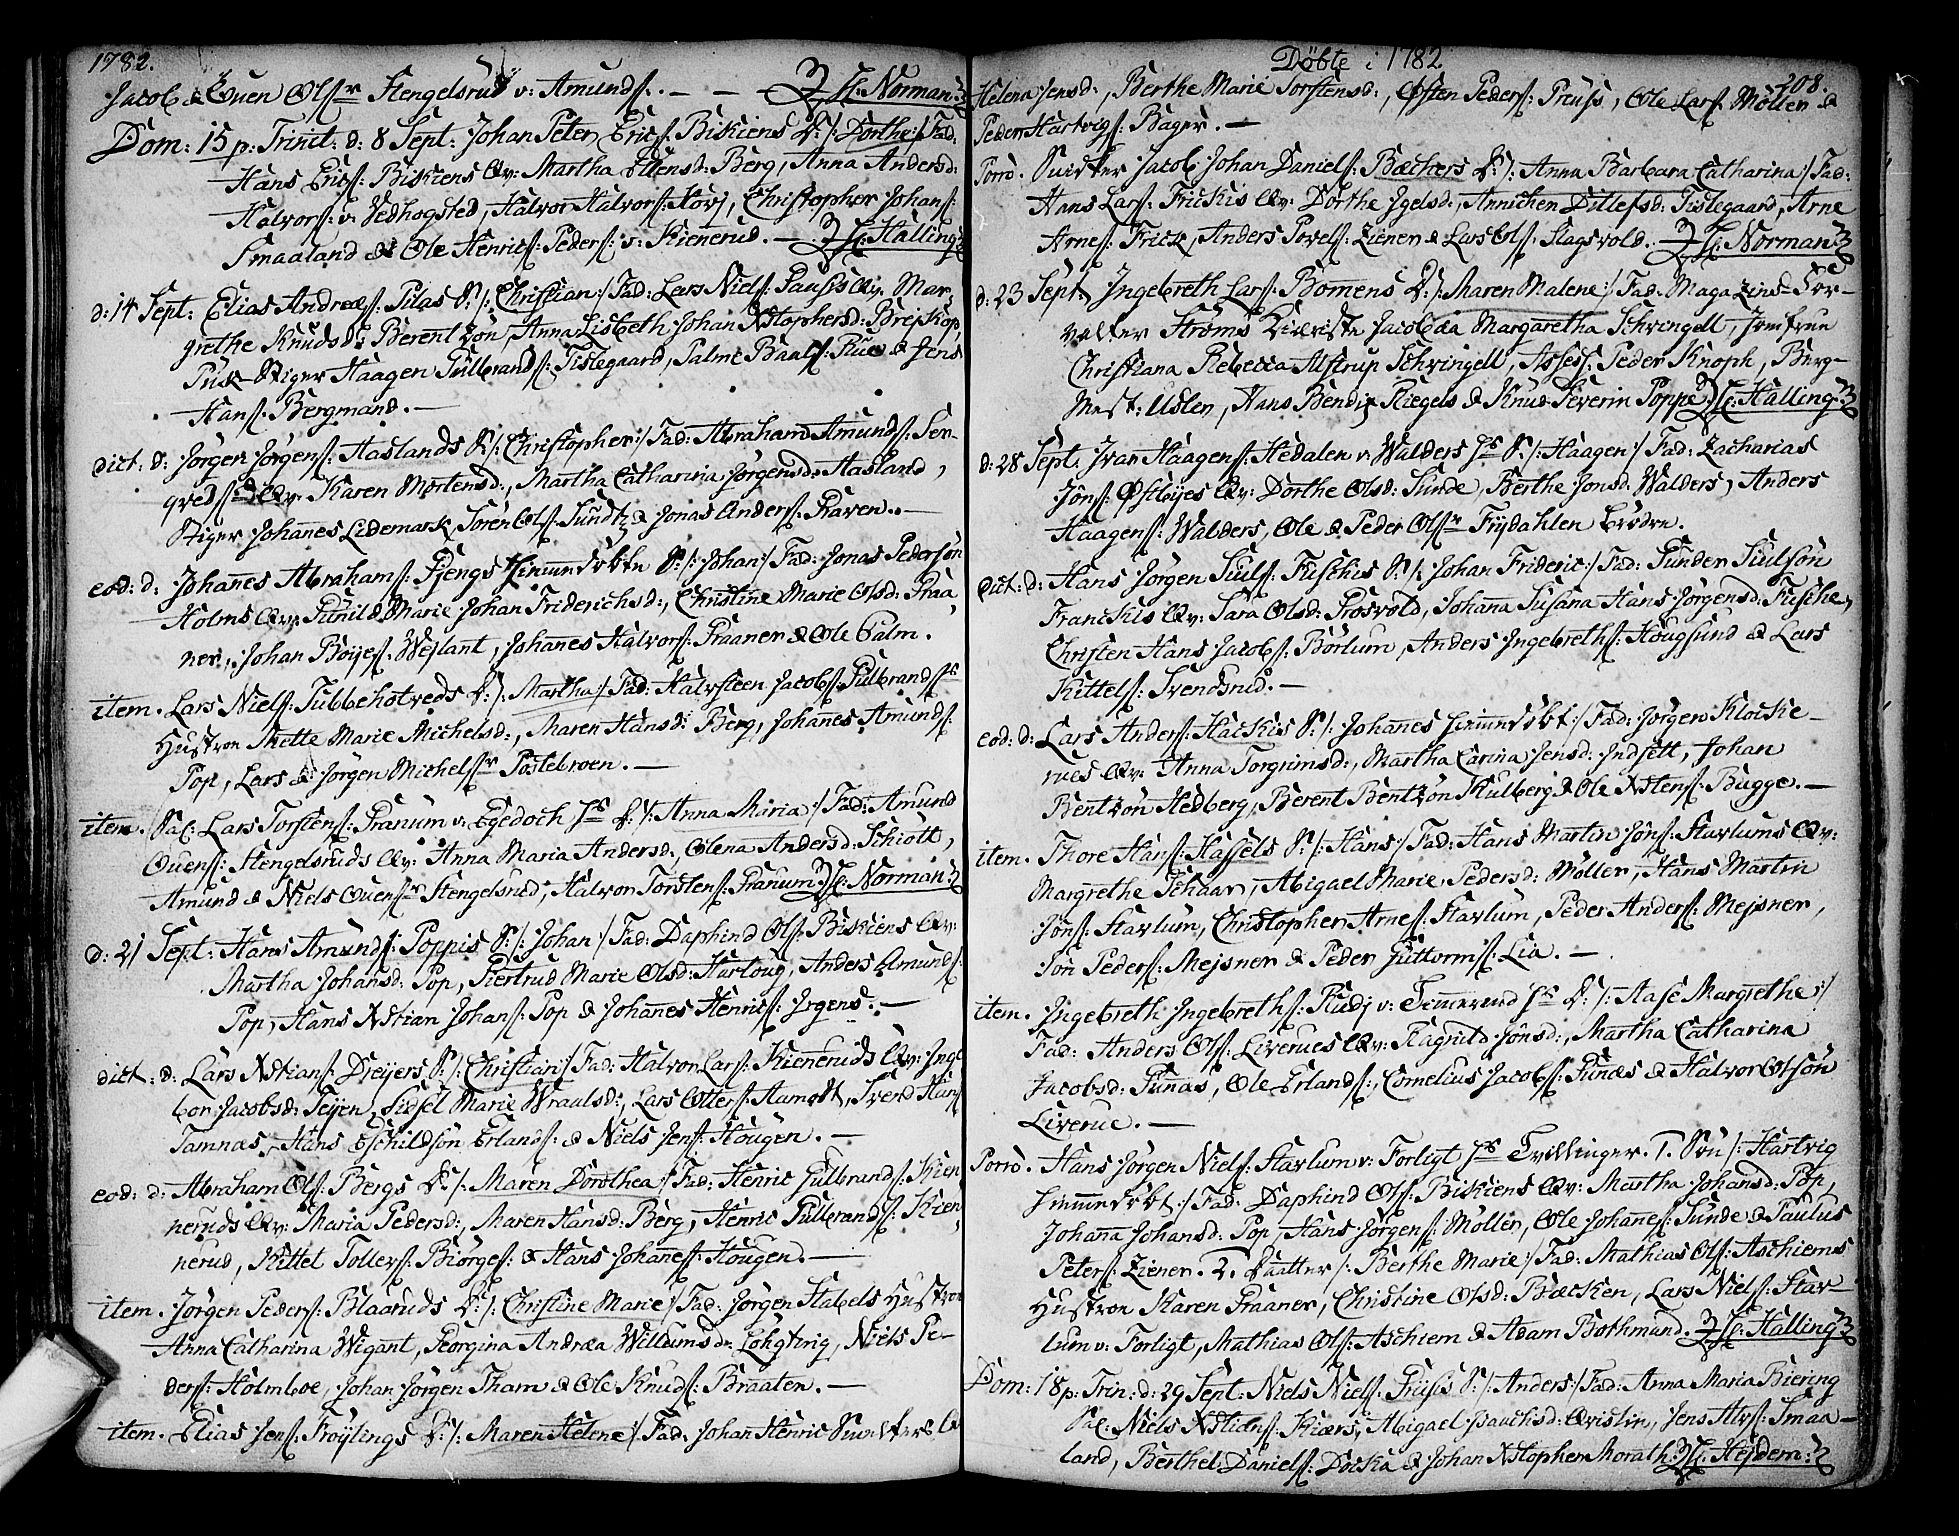 1782.
Jacob & Ouen Ols:r Stengelsrud v: Amunds:. — — H: Norman
Dom: 15 p: Trinit: d: 8 Sept: Johan Peter Erics: Biskiens D:/: Dorthe:/ Fad:
Hans Erics: Biskiens Qv: Martha Ellensd: Berg, Anna Andersd:
Halvors: v: Vedhogsted, Halvor Halvors: Hovj, Christopher Johans:
Smaaland & Ole Henrics: Peders: v: Kienerud. — H: Halling
d: 14 Sept: Elias Andreæs: Pilas S:/: Christian:/ Fad: Lars Niels: Pausis Qv: Mar-
grethe Knudsd: Berentzøn, Anna Lisbeth Johan Xstophersd: Brejskop,
Pusk-Stiger Haagen Gulbrands: Tislegaard, Palme Baals: Rue & Jens
Hans: Bergmand. —
dict: d: Jørgen Jørgens: Haslands S:/: Christopher:/ Fad: Abraham Amunds: Ser-
qveds Qv: Karen Mortensd:, Martha Catharina Jørgensd: Hasland,
Stiger Johanes Lidemark, Søren Ols: Sundt & Jonas Anders: Raven. —
eod: d: Johannes Abrahams: Fjengs Hiemmedøbte S:/: Johan:/ Fad: Jonas Pedersøn
Holms Qv: Gunild Marie Johan Friderichsd:, Christine Marie Olsd: Praa-
ner, Johan Bøijes: Wejlant, Johannes Halvors: Praaner & Ole Palm.
item. Lars Niels: Tubbehotveds D:/: Martha:/ Fad: Halvsteen Jacobs: Gulbrands:s
Hustroe Mette Marie Michelsd:, Maren Hansd: Berg, Johanes Amunds:
Pop, Lars & Jørgen Michels:r Postebroen. —
item. Sal: Lars Torstens: Granum v: Egedoch Hs D:/: Anna Maria:/ Fad: Amund
Ouens: Stengelsruds Qv: Anna Maria Andersd:, Olena Andersd: Schiøtt,
Amund & Niels Ouens:r Stengelsrud, Halvor Torstens: Granum. H: Norman
d: 21 Sept: Hans Amunds: Poppis S:/: Johan:/ Fad: Daphind Ols: Biskiens Qv:
Martha Johansd: Pop, Giertrud Marie Olsd: Hartoug, Anders Amunds:
Pop, Hans Xstian Johans: Pop & Johanes Henrics: Jrgens. —
dict: d: Lars Xstians: Dreijers S:/: Christian:/ Fad: Halvor Lars: Kieneruds Qv: Inge-
bor Jacobsd: Teijen, Sidsel Marie Wraalsd:, Lars Otters: Aamodt, Svend Hans:
Tamnæs, Hans Eschildsøn Erlands: & Niels Jens: Hougen. —
eod: d: Abraham Ols: Bergs D:/: Maren Dorothea:/ Fad: Henric Gulbrands: Kien-
neruds Qv: Maria Pedersd:, Maren Hansd: Berg, Henric Gulbrands: Kien-
nerud, Kittel Tollefs: Biørges: & Hans Johanes: Hougen. —
item. Jørgen Peders: Blaaruds D:/: Christine Marie:/ Fad: Jørgen Habels Hustroe
Anna Catharina Wigant, Georgina Andræa Willumsd: Løkstrig, Niels Pe-
ders: Holmboe, Johan Jørgen Tham & Ole Knuds: Braaten. —
item. Elias Jens: Frøylings D:/: Maren Helene:/ Fad: Johan Henric Snedkers Qv:
Døbte i 1782
208.
Helena Jensd:, Berthe Marie Torstensd:, Østen Peders: Preuss, Ole Lars: Møller &
Peder Hartvigs: Bager. —
Porro. Snidker Jacob Johan Daniels: Bæckers D:/: Anna Barbara Catharina:/ Fad:
Hans Lars: Frickis Qv: Dorthe Igelsd:, Annichen Ditlefsd: Tislegaard, Arne
Arnes: Frick, Anders Povels: Ziener & Lars Ols: Slagsvold. — H: Norman
d: 23 Sept: Ingebreth Lars: Bomens D:/: Maren Malene:/ Fad: Magazins-For-
valter Strøms Kiæreste Jacobæa Margaretha Schvingell, Jomfrue
Christiana Rebecca Alstrup Schvingell, Assess: Peder Knoph, Berg-
Mest: Uslen, Hans Bendix Riegels & Knud Severin Poppe. H: Halling
d: 28 Sept: Ivar Haagens: Hedalen v: Walders Hs S:/: Haagen:/ Fad: Zacharias
Jøns: Østbyes Qv: Dorthe Olsd: Sunde, Berthe Jonsd: Walders, Anders
Haagens: Walders, Ole & Peder Ols:r Frydahlen Brødre.
dict: d: Hans Jørgen Juuls: Fuskis S:/: Johan Frideric:/ Fad: Gunder Juulsøn
Franckis Qv: Sara Olsd: Prosvold, Johanna Susana Hans Jørgensd: Fische,
Christen Hans Jacobs: Børlum, Anders Ingebreths: Hougsund & Lars
Kittels: Svendsrud. —
eod: d: Lars Anders: Hackis S:/: Johanes hiemmedøbt:/ Fad: Jørgen Klocke-
rues Qv: Anna Torgrimsd:, Martha Carina Jensd: Indsett, Johan
Bentzøn Hedberg, Berent Bentzøn Kulberg & Ole Xstens: Bugge. —
item. Thore Hans: Hassels S:/: Hans:/ Fad: Hans Martin Jøns: Stavlums Qv:
Margrethe Schaar, Abigael Marie Pedersd: Møller, Hans Martin
Jøns: Stavlum, Christopher Arnes: Stavlum, Peder Anders: Mejsner,
Jøn Peders: Mejsner & Peder Guttorms: Lia. —
item. Ingebreth Ingebreths: Rudj v: Temmerud Hs D:/: Aase Margrethe:/
Fad: Anders Ols: Liverues Qv: Ragnild Jønsd:, Martha Catharina
Jacobsd: Funæs, Ole Erlands:, Cornelius Jacobs: Funæs & Halvor Olsøn
Liverue. —
Porro. Hans Jørgen Niels: Stavlum v: Forligt Hs Tvillinger. 1. Søn /: Hartvig
hiemmedøbt:/ Fad: Daphind Ols: Biskiens Qv: Martha Johansd: Pop,
Johanna Johansd: Pop, Hans Jørgens: Møller, Ole Johanes: Sunde & Paulus
Peters: Ziener. 2. Daatter /: Berthe Marie:/ Fad: Mathias Ols: Aschiems
Hustroe Karen Praaner, Christine Olsd: Bæcken, Lars Niels: Stav-
lum v: Forligt, Mathias Ols: Aschiem & Adam Bothmund. H: Halling
Dom: 18 p: Trin: d: 29 Sept: Niels Niels: Prüsis S:/: Anders:/ Fad: Anna Maria Biering
Sal: Niels Xstians: Kiærs, Abigael Isaachsd: Qvistin, Jens Alvs: Smaa-
land, Berthel Daniels: Docka & Johan Xstopher Morath. H: Hejdem